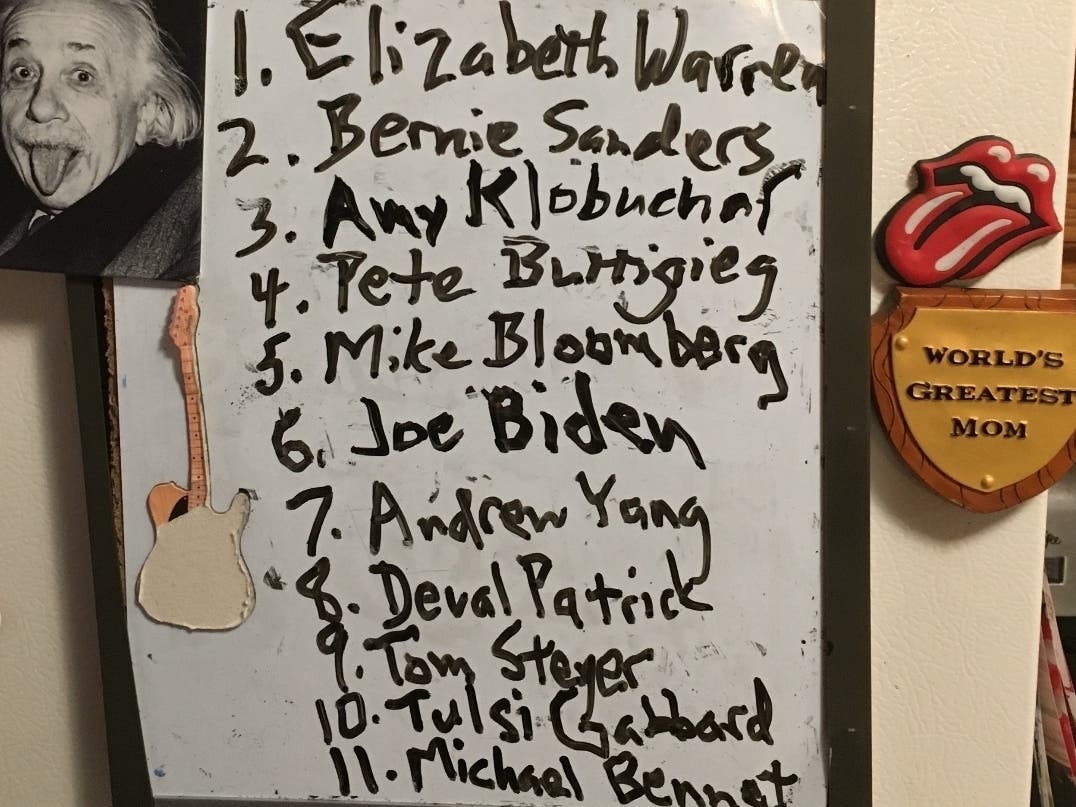 1. Elizabeth Warren
2. Bernie Sanders
3. Amy Klobuchar
4. Pete Buttigieg
5. Mike Bloomberg
6. Joe Biden
7. Andrew Yang
8. Deval Patrick
9. Tom Steyer
10. Tulsi Gabbard
11. Michael Bennet
WORLD'S
GREATEST
MOM